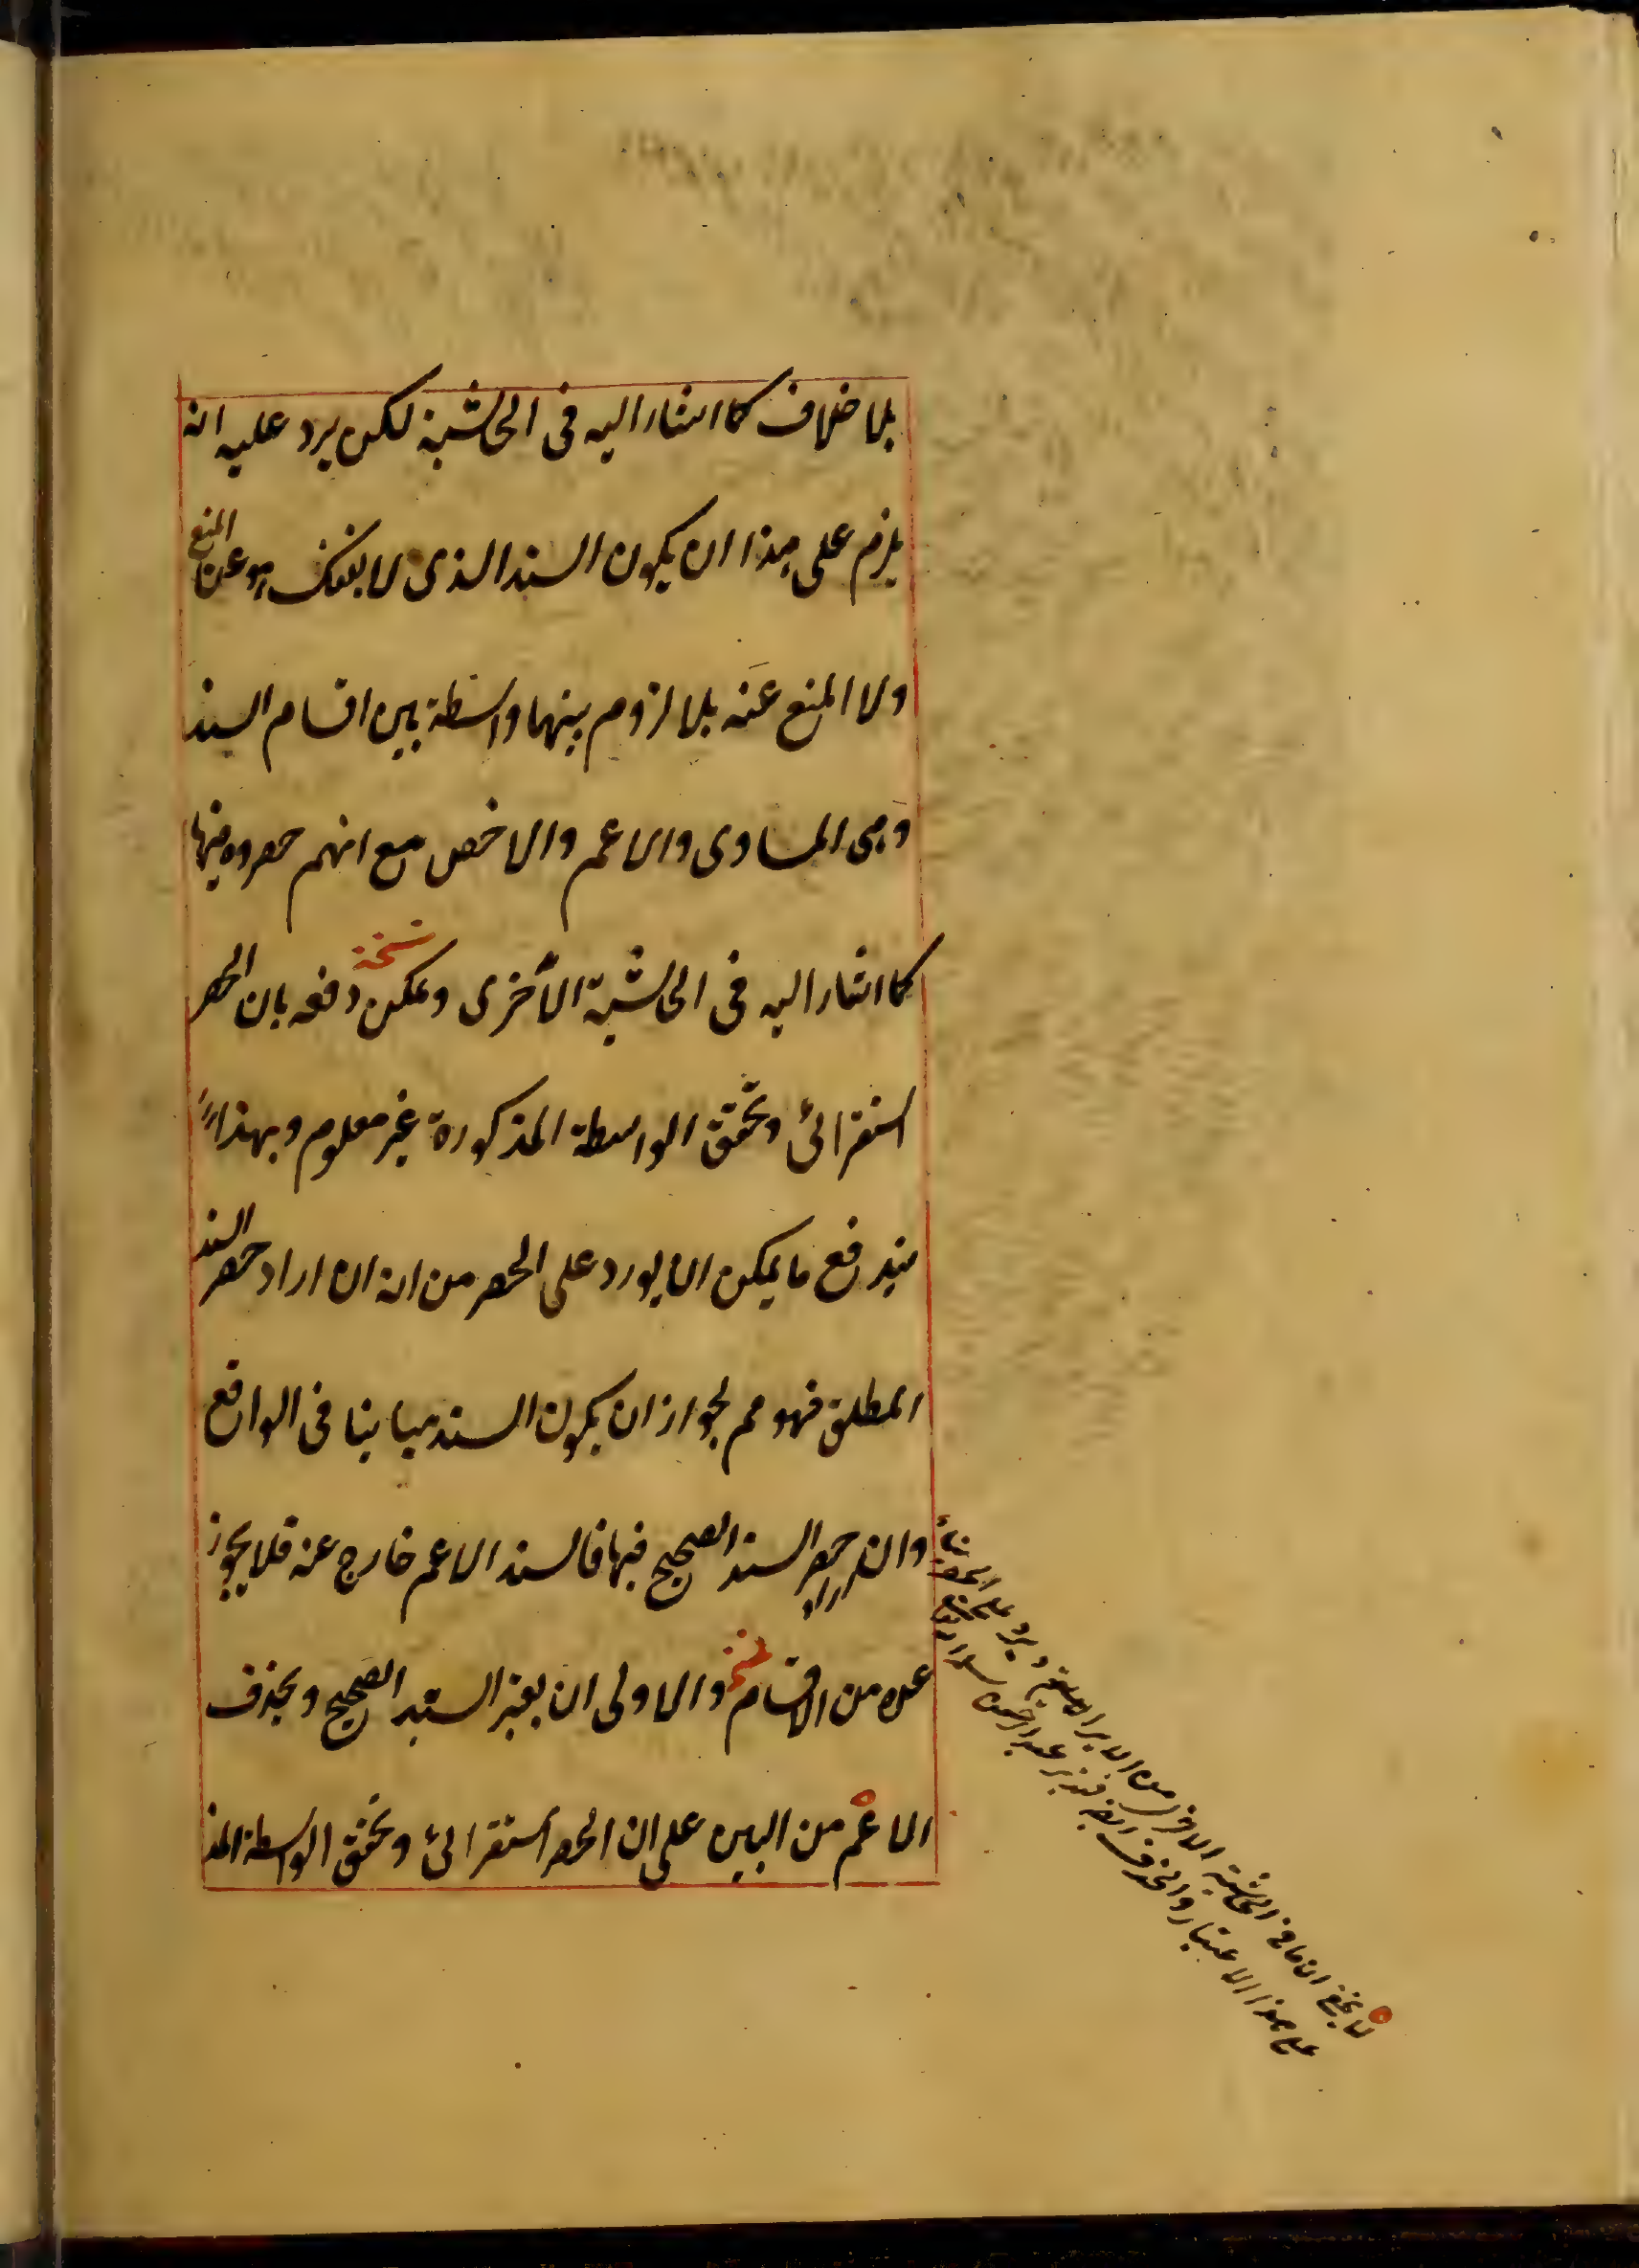 بلا خلاف كما اشار اليه فى الحاشية لكن يرد عليه انه
يلزم على هذا ان يكون السند الذى لا ينفك هو عن المنع
ولا المنع عنه بلا لزوم بينهما واسطة بين اقسام السند
وهى المساوى والاعم والاخص مع انهم حصروه فيها
كما اشار اليه فى الحاشية الأخرى ويمكن دفعه بان الحصر
نسخة
استقرائى وتحقق الواسطة المذكورة غير معلوم وبهذا
يندفع ما يمكن ان يورد على الحصر من انه ان اراد حصر السند
المطلق فهو مم لجواز ان يكون السند مباينا فى الواقع
وان اراد حصر السند الصحيح فيها فالسند الاعم خارج عنه فلا يجوز
عده من الاقسام والاولى ان يعتبر السند الصحيح ويحذف
الاعم من البين على ان الحصر استقرائى وتحقق الواسطة المذ
لا يخفى ان ما فى الحاشية الاخرى من الايراد يرد على الحصر
على هذا الاعتبار والحذف ايضا فتدبر عبد الرحمن